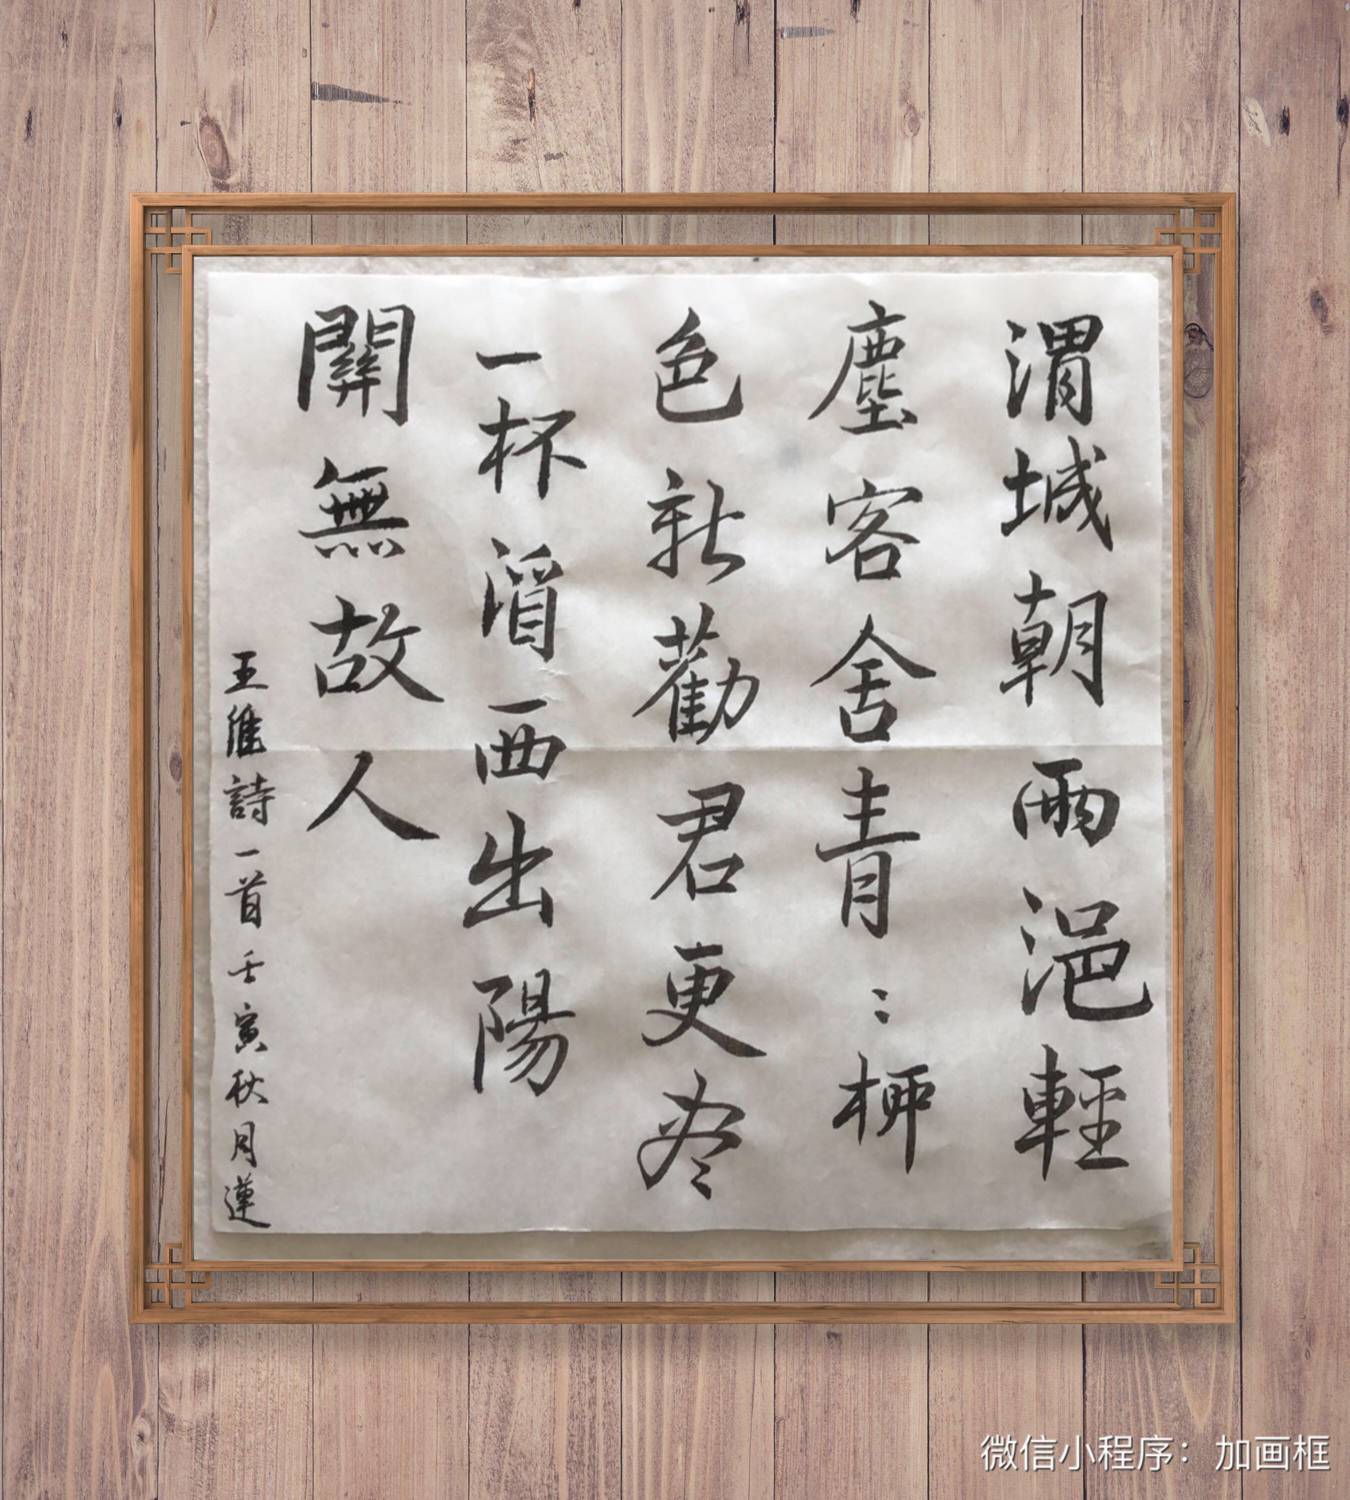 渭城朝雨浥輕
塵客舍青〻柳
色新勸君更尽
一杯酒西出陽
關無故人
王維詩一首壬寅秋月蓮
微信小程序：加画框